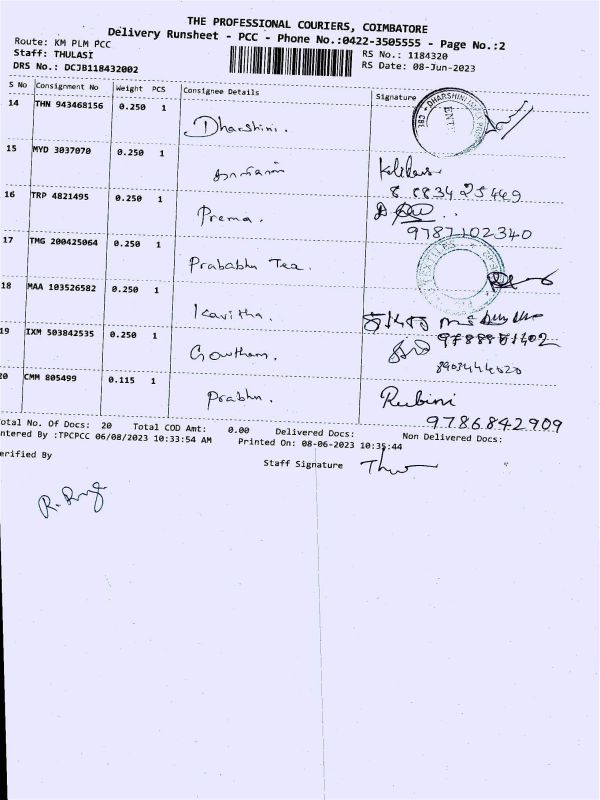 THE PROFESSIONAL COURIERS, COIMBATORE
Delivery Runsheet - PCC - Phone No.:0422-3505555 - Page No.:2
Route: KM PLM PCC
RS No.: 1184320
Staff: THULASI
RS Date: 08-Jun-2023
DRS No.: DCJB118432002
S No Consignment No Weight PCS Consignee Details Signature
14 THN 943468156 0.250 1
Dharshini.
15 MYD 3037070 0.250 1
8 8834 25469
16 TRP 4821495 0.250 1
Prema.
9787102340
17 TMG 200425064 0.250 1
Prababhu Tea.
18 MAA 103526582 0.250 1
Kavitha.
19 IXM 503842535 0.250 1
Gowtham.
8903444020
20 CMM 805499 0.115 1
Prabhu.
Rubini
9786842909
otal No. Of Docs: 20 Total COD Amt: 0.00 Delivered Docs: Non Delivered Docs:
ntered By :TPCPCC 06/08/2023 10:33:54 AM Printed On: 08-06-2023 10:35:44
erified By
Staff Signature